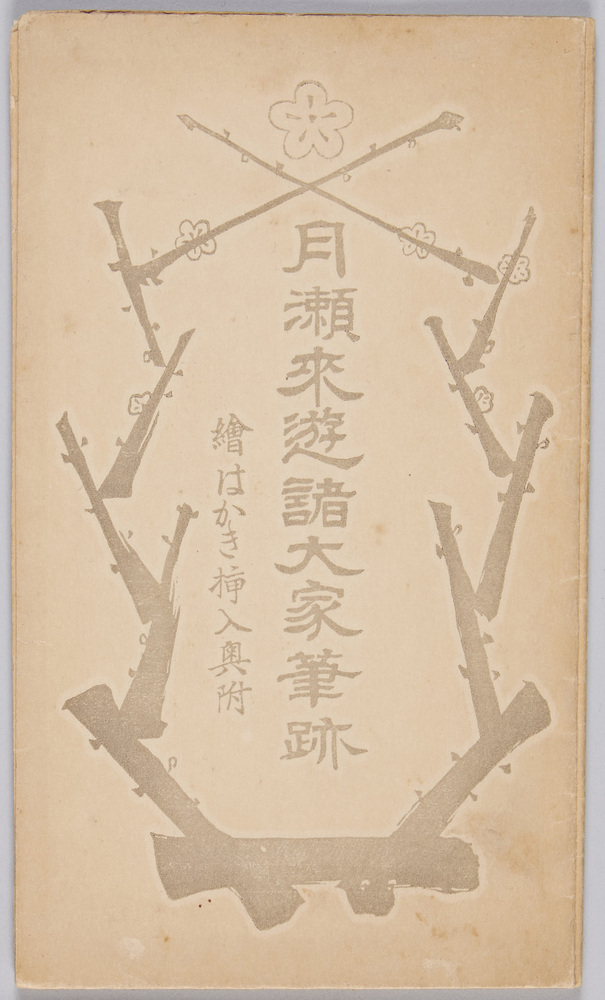 月瀬來遊諸大家筆跡
繪はかき挿入奥附